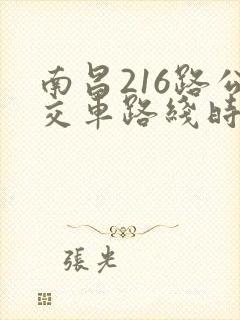 南昌216路公
交車路綫時
張光